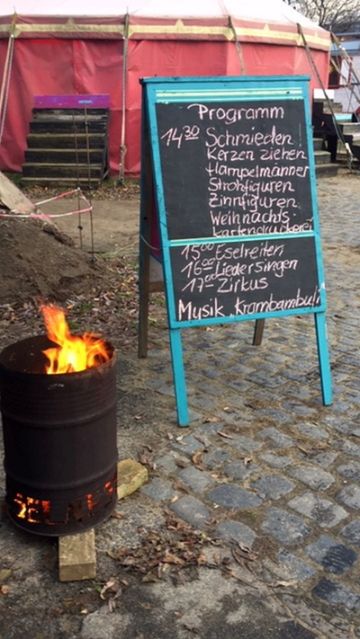 Programm
14³⁰ Schmieden
Kerzen ziehen
Hampelmänner
Strohfiguren
Zinnfiguren
Weihnachts-
kartendruckerei
15⁰⁰ Eselreiten
16⁰⁰ Liedersingen
17⁰⁰ Zirkus
Musik „Krambambuli